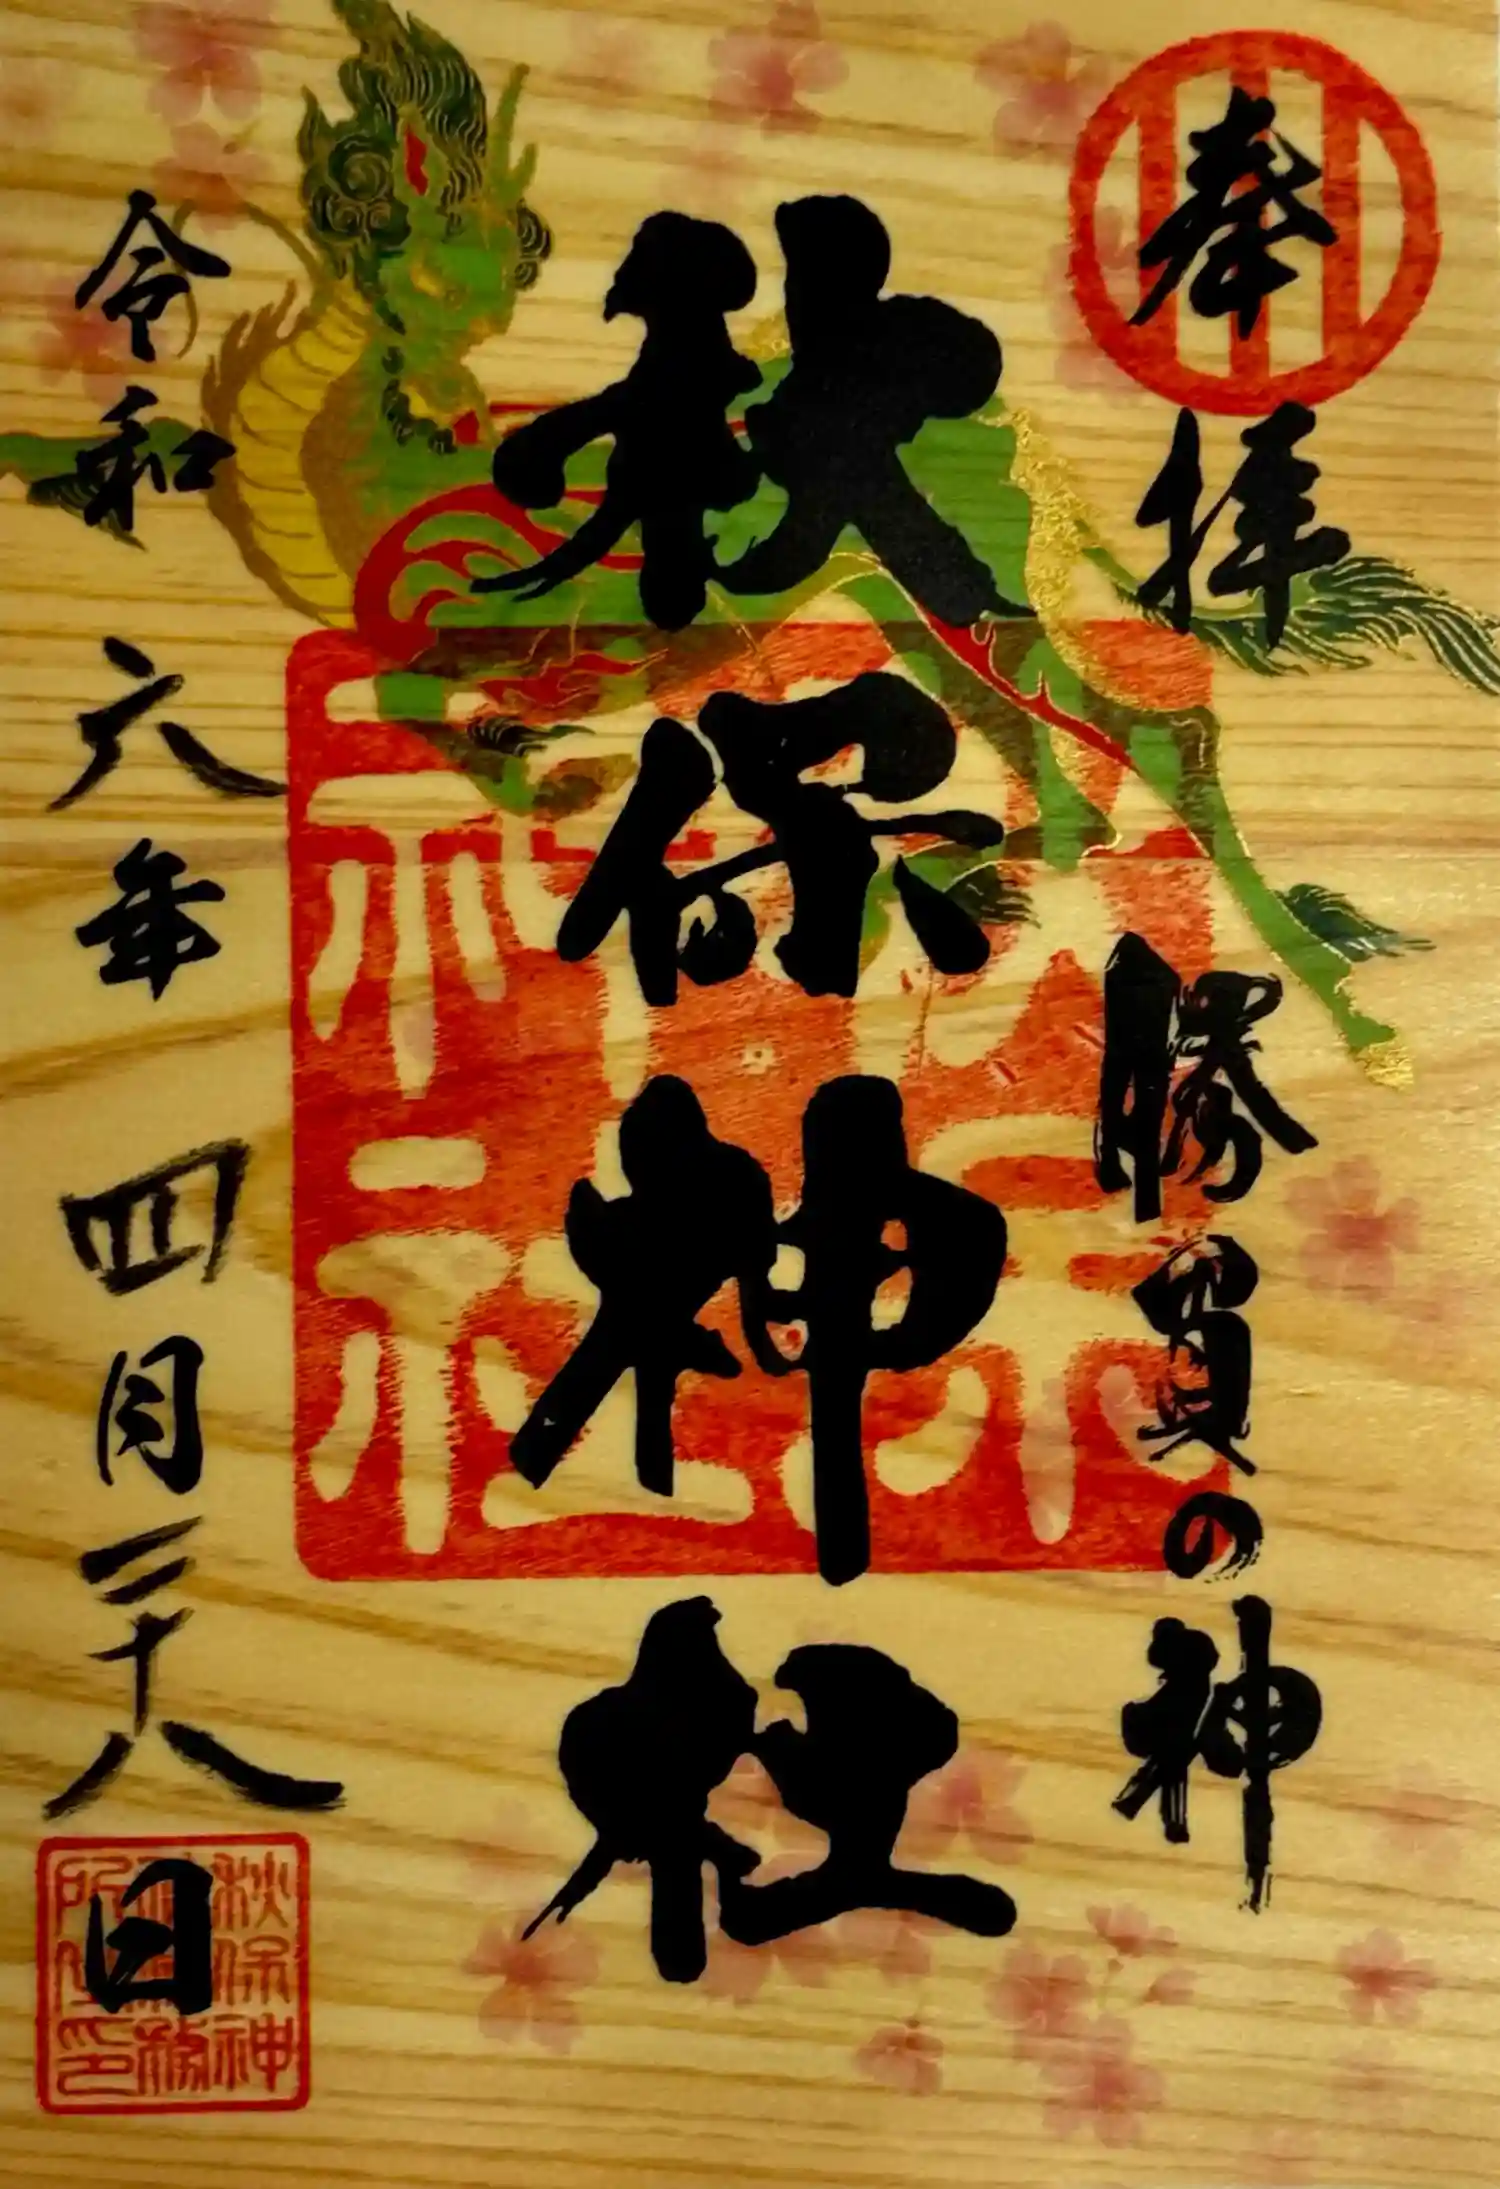 奉拝
勝負の神
秋保神社
令和六年四月二十八日
秋保神社
秋保神